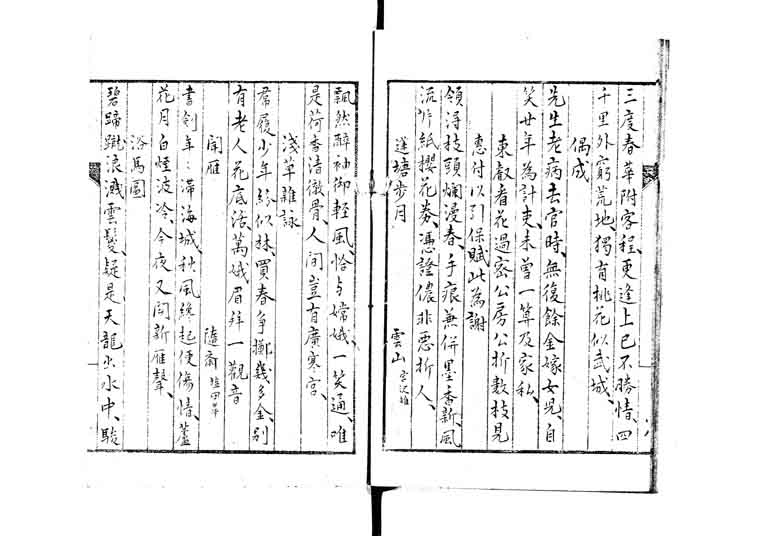 三度春華附客程、更逢上巳不勝情、四
千里外窮荒地、獨有桃花似武城、
偶成
先生老病去官時、無復餘金嫁女児、自
笑廿年為計吏、未曽一算及家私、
東叡看花過密公房公折数枝見
恵付以引保賦此為謝
領得枝頭爛漫春、手痕兼併墨香新、風
流片紙櫻花券、憑證儂非悪折人、
蓮塘歩月
雲山
飄然醉袖御軽風、恰与嫦娥一笑通、唯
是荷香清徹骨、人间豈有廣寒宮、
淺草雜詠
裙履少年紛似抹、買春争擲幾多金、別
有老人花底活、萬娥眉拜一觀音
聞雁
隨齋
書剣年々滞海城、秋風纔起便傷情、蘆
花月白煙波冷、今夜又聞新雁聲、
浴馬圖
碧蹄蹴浪濺雲鬉、疑是天龍出水中、駿